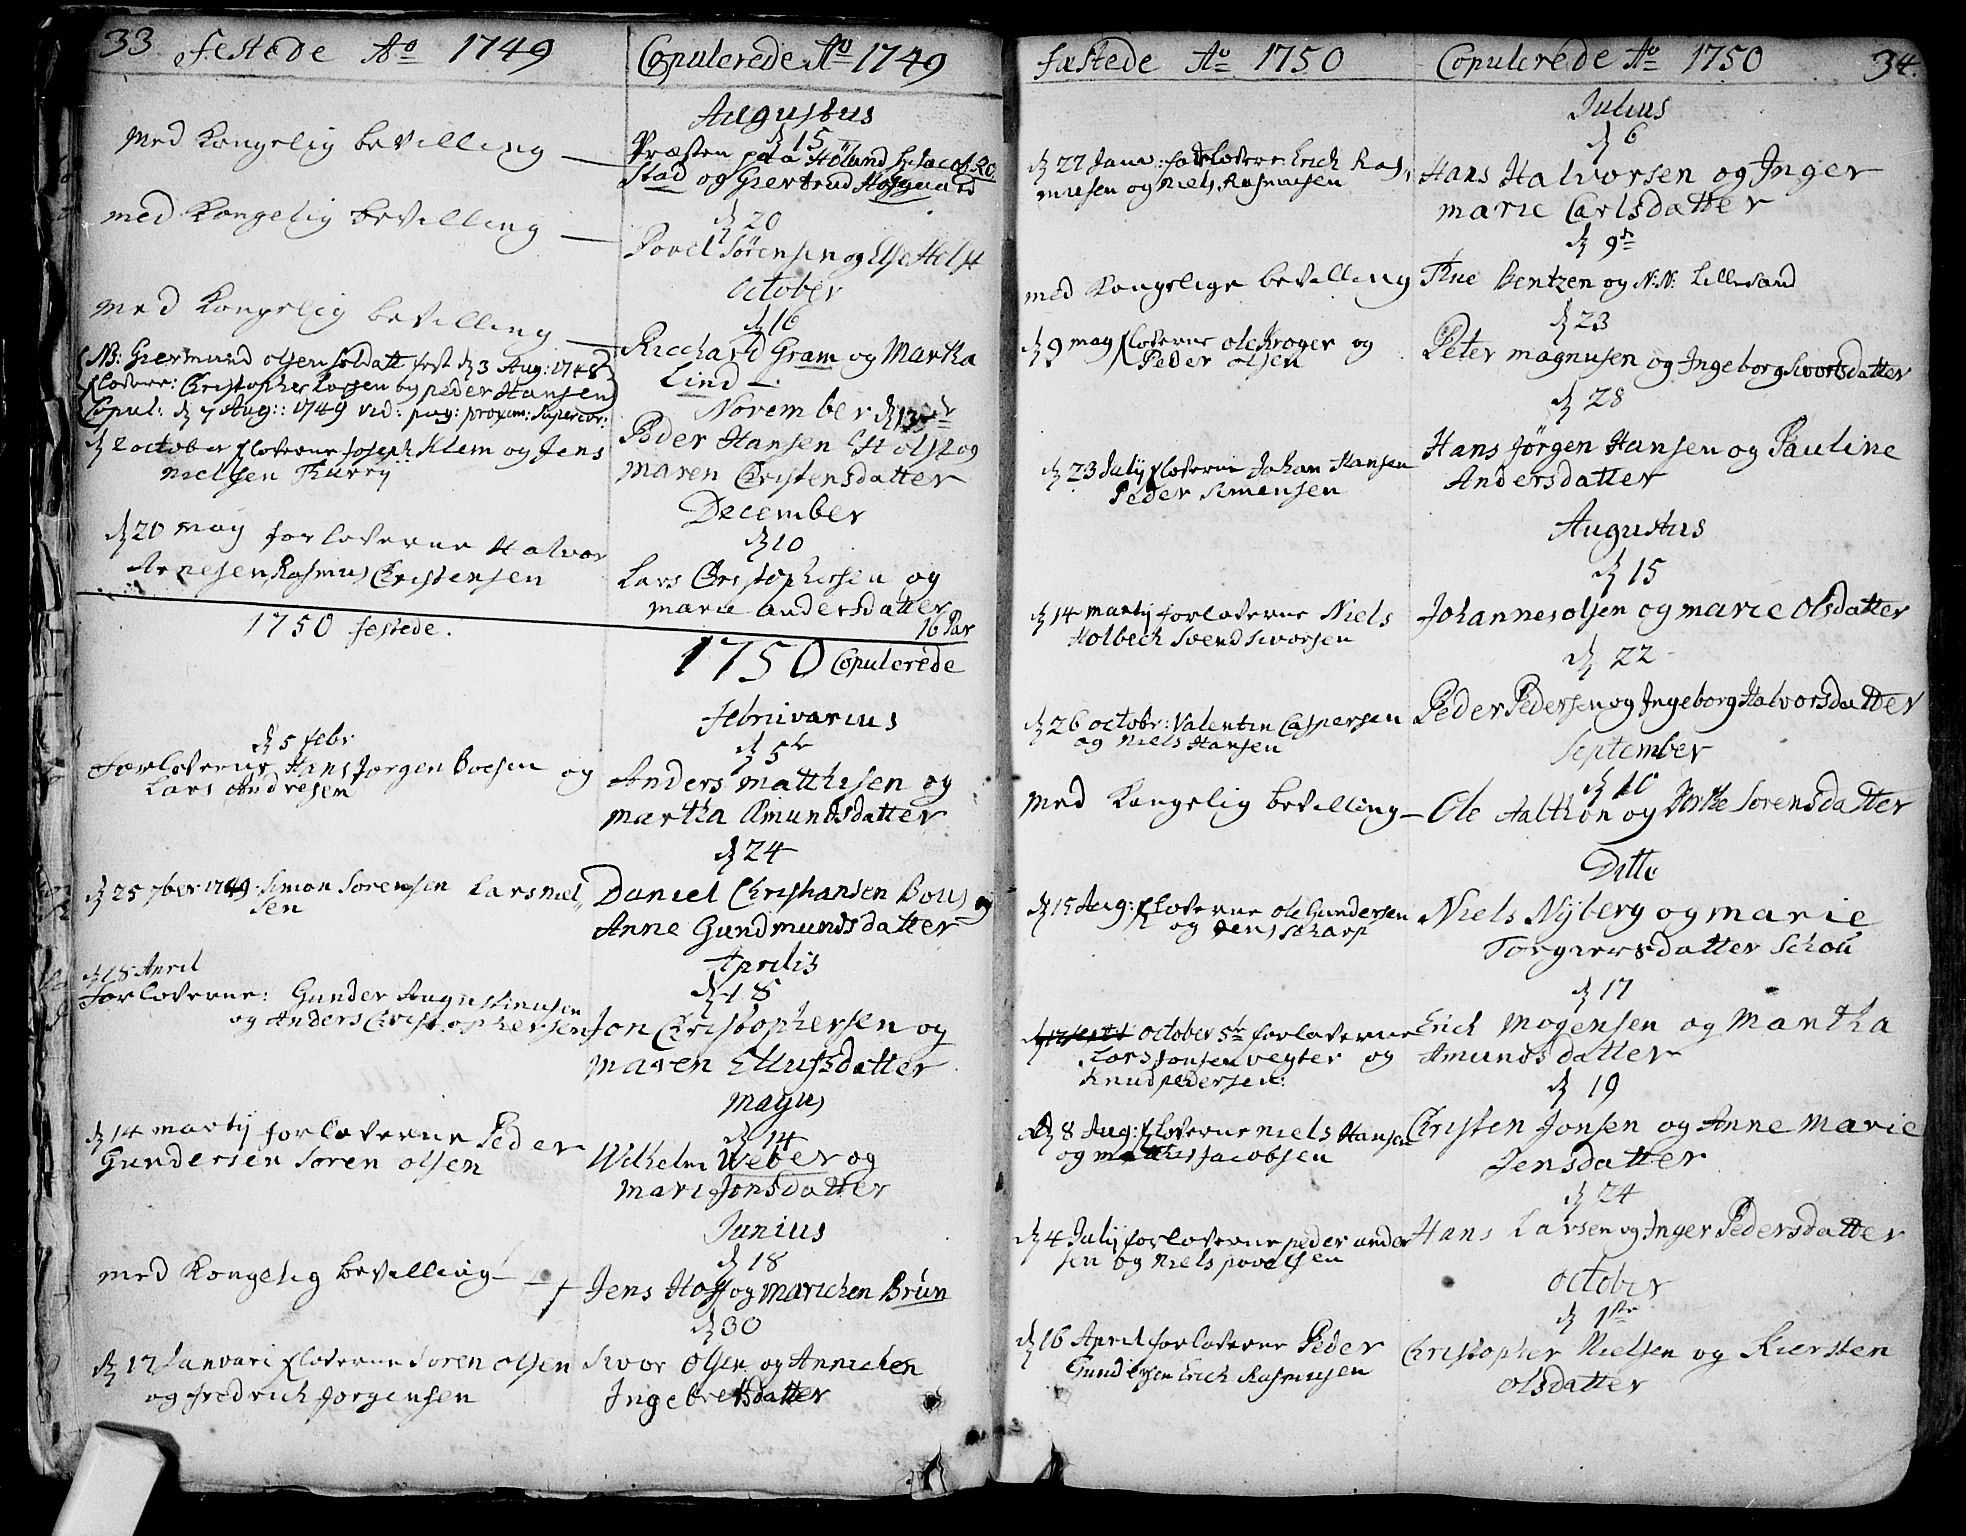 33 Festede Aº 1749
med Kongelig bevilling —
med Kongelig bevilling —
med Kongelig bevilling —
NB: Giermund olsen soldatt fest d 3 Aug: 1748
floverne: Christopher Larsen og peder Hansen
Copul: d 7 Aug:: 1749 vid: pag: proxim: super:
d 2 october floverne Joseph Klem og Jens
Nielsen Thurry
d 20 may forloverne Halvor
Arnesen Rasmus Christensen
1750 festede.
d 5 febr
Forloverne Hans Jørgen Boesen og
Lars Andresen
d 25 7ber 1749. Simon Sørensen Lars Niel,,
sen
d 18 April
Forloverne: Gunder Augustinusen
og Anders Christophersen
d 14 martij forloverne Peder
Gundersen Søren olsen
med Kongelig bevilling —
d 12 Januari floverne Søren olsen
og fredrich Jørgensen
Copulerede Aº 1749
Augustus
d 15
Præsten paa Høland Hr Jacob Ro,,
stad og Giertrud Hofgaard
d 20
Povel Sørensen og Else Helst
October
d 16
Ricchard Gram og Martha
Lind —.
November d 13de
Peder Hansen Holst og
Maren Christensdatter
December
d 10
Lars Christophersen og
Marie Andersdatter
16 Par
1750 Copulerede
Februarius
d 5te
Anders Matthisen og
Martha Amundsdatter
d 24
Daniel Christiansen Bous og
Anne Gundmundsdatter
Aprilis
d 18
Jon Christophersen og
Maren Ellufsdatter
Majus
d 14
Wilhelm Weber og
Mari Jonsdatter
Junius
d 18
Jens Hoff og Marichen Brun
d 30
Sivor Olsen og Annichen
Ingebretsdatter
fæstede Aº 1750
d 22 Janv: forloverne Erich Ras,,
musen og Niels Rasmusen
med Kongelige bevilling
d 9 may floverne ole Kroger og
Peder olsen
d 23 July floverne Johan Hansen
Peder Simensen
d 14 martij forloverne Niels
Holbech Svend Sivorsen
d 26 octobr: Valentin Caspersen
og Niels Hansen
med Kongelig bevilling —
d 15 Aug: floverne ole Gundersen
og Jens Scharp
october 5te forloverne
Lars Jonsen vegter og
Knud pedersen:
d 8 Aug: floverne Niels Hansen
og Mathis Jacobsen
d 4 July forloverne peder ander
sen og Niels povelsen
d 16 April forloverne Peder
Gundersen Erich Rasmusen
Copulerede Aº 1750 34.
Julius
d 6
Hans Halvorsen og Inger
Marie Carlsdatter
d 9de
Thue Bentzen og N: N: Lillesand
d 23
Peter Magnusen og Ingeborg Sivorsdatter
d 28
Hans Jørgen Hansen og Pauline
Andersdatter
Augustus
d 15
Johannes olsen og Marie Olsdatter
d 22
Peder Pedersen og Ingeborg Halvorsdatter
September
d 10
Ole Aalthon og Dorthe Sørensdatter
Ditto
Niels Nyberg og Marie
Torgiersdatter Schou
d 17
Erich Mogensen og Martha
Amundsdatter
d 19
Christen Jonsen og Anne Marie
Jensdatter
d 24
Hans Larsen og Inger Pedersdatter
October
d 1ste
Christopher Nielsen og Kiersten
Olsdatter